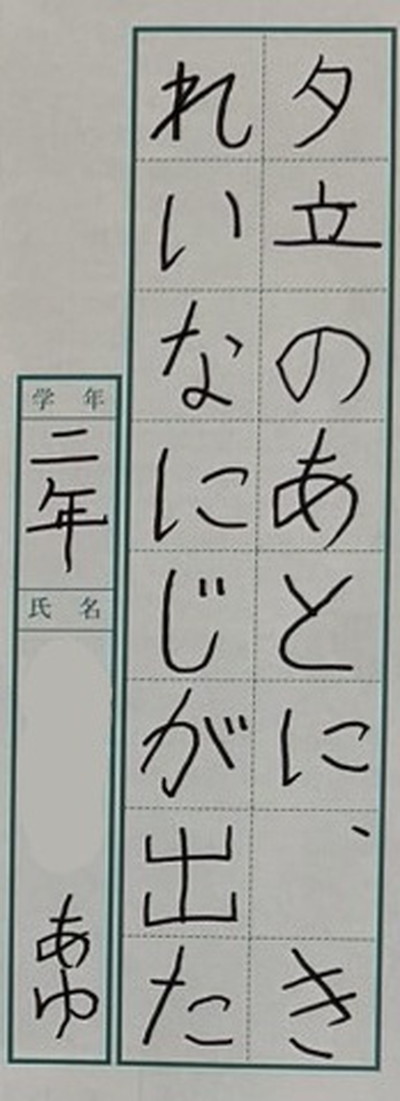 夕立のあとに、き
れいなにじが出た
学年
二年
氏名
あゆ